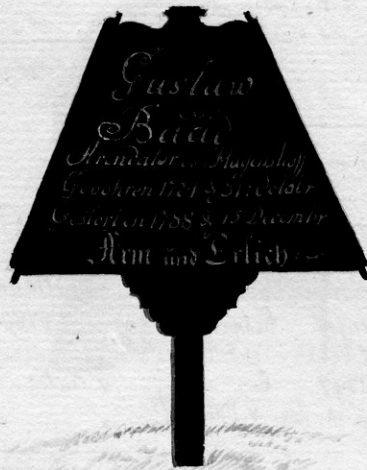 Gustaw
Badd
Arendator Hagenshoff
Gebohren 17 4 d 31: Octobr
Gestorben 1788 d 15 Decembr
Arm und Erlich